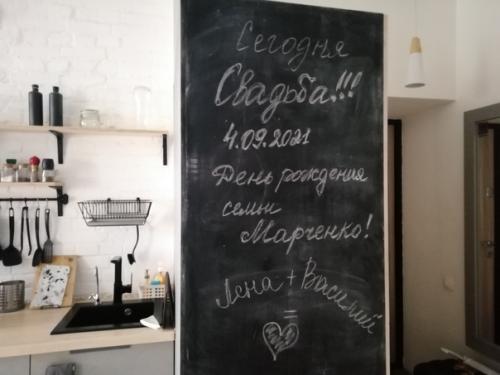 Сегодня
Свадьба!!!
4.09.2021
День рождения
семьи
Марченко!
Лена + Василий
=